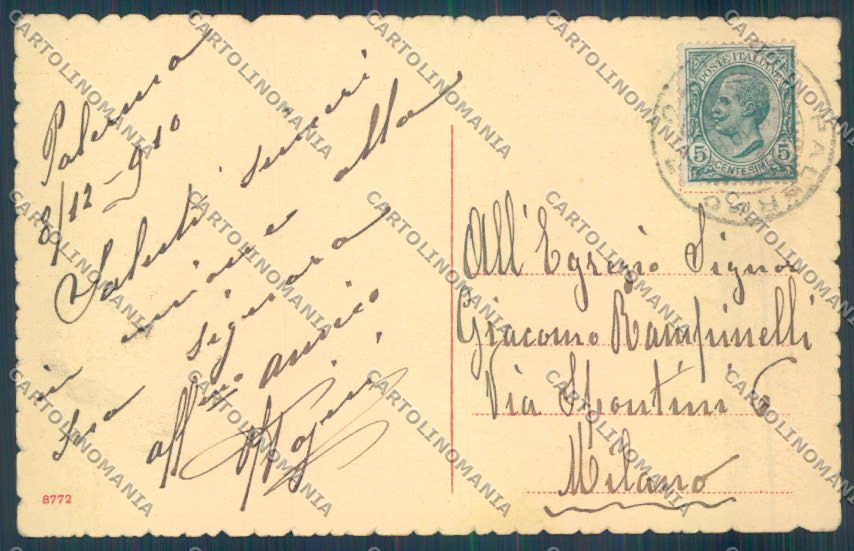 Palermo
8/12-910
Saluti sinceri
in unione alla
sua signora
aff/mo amico
All'Egregio Signor
Giacomo Rampinelli
Via Spontini 6
Milano
POSTE ITALIANE
5 CENTESIMI 5
PALERMO
8772
CARTOLINOMANIA